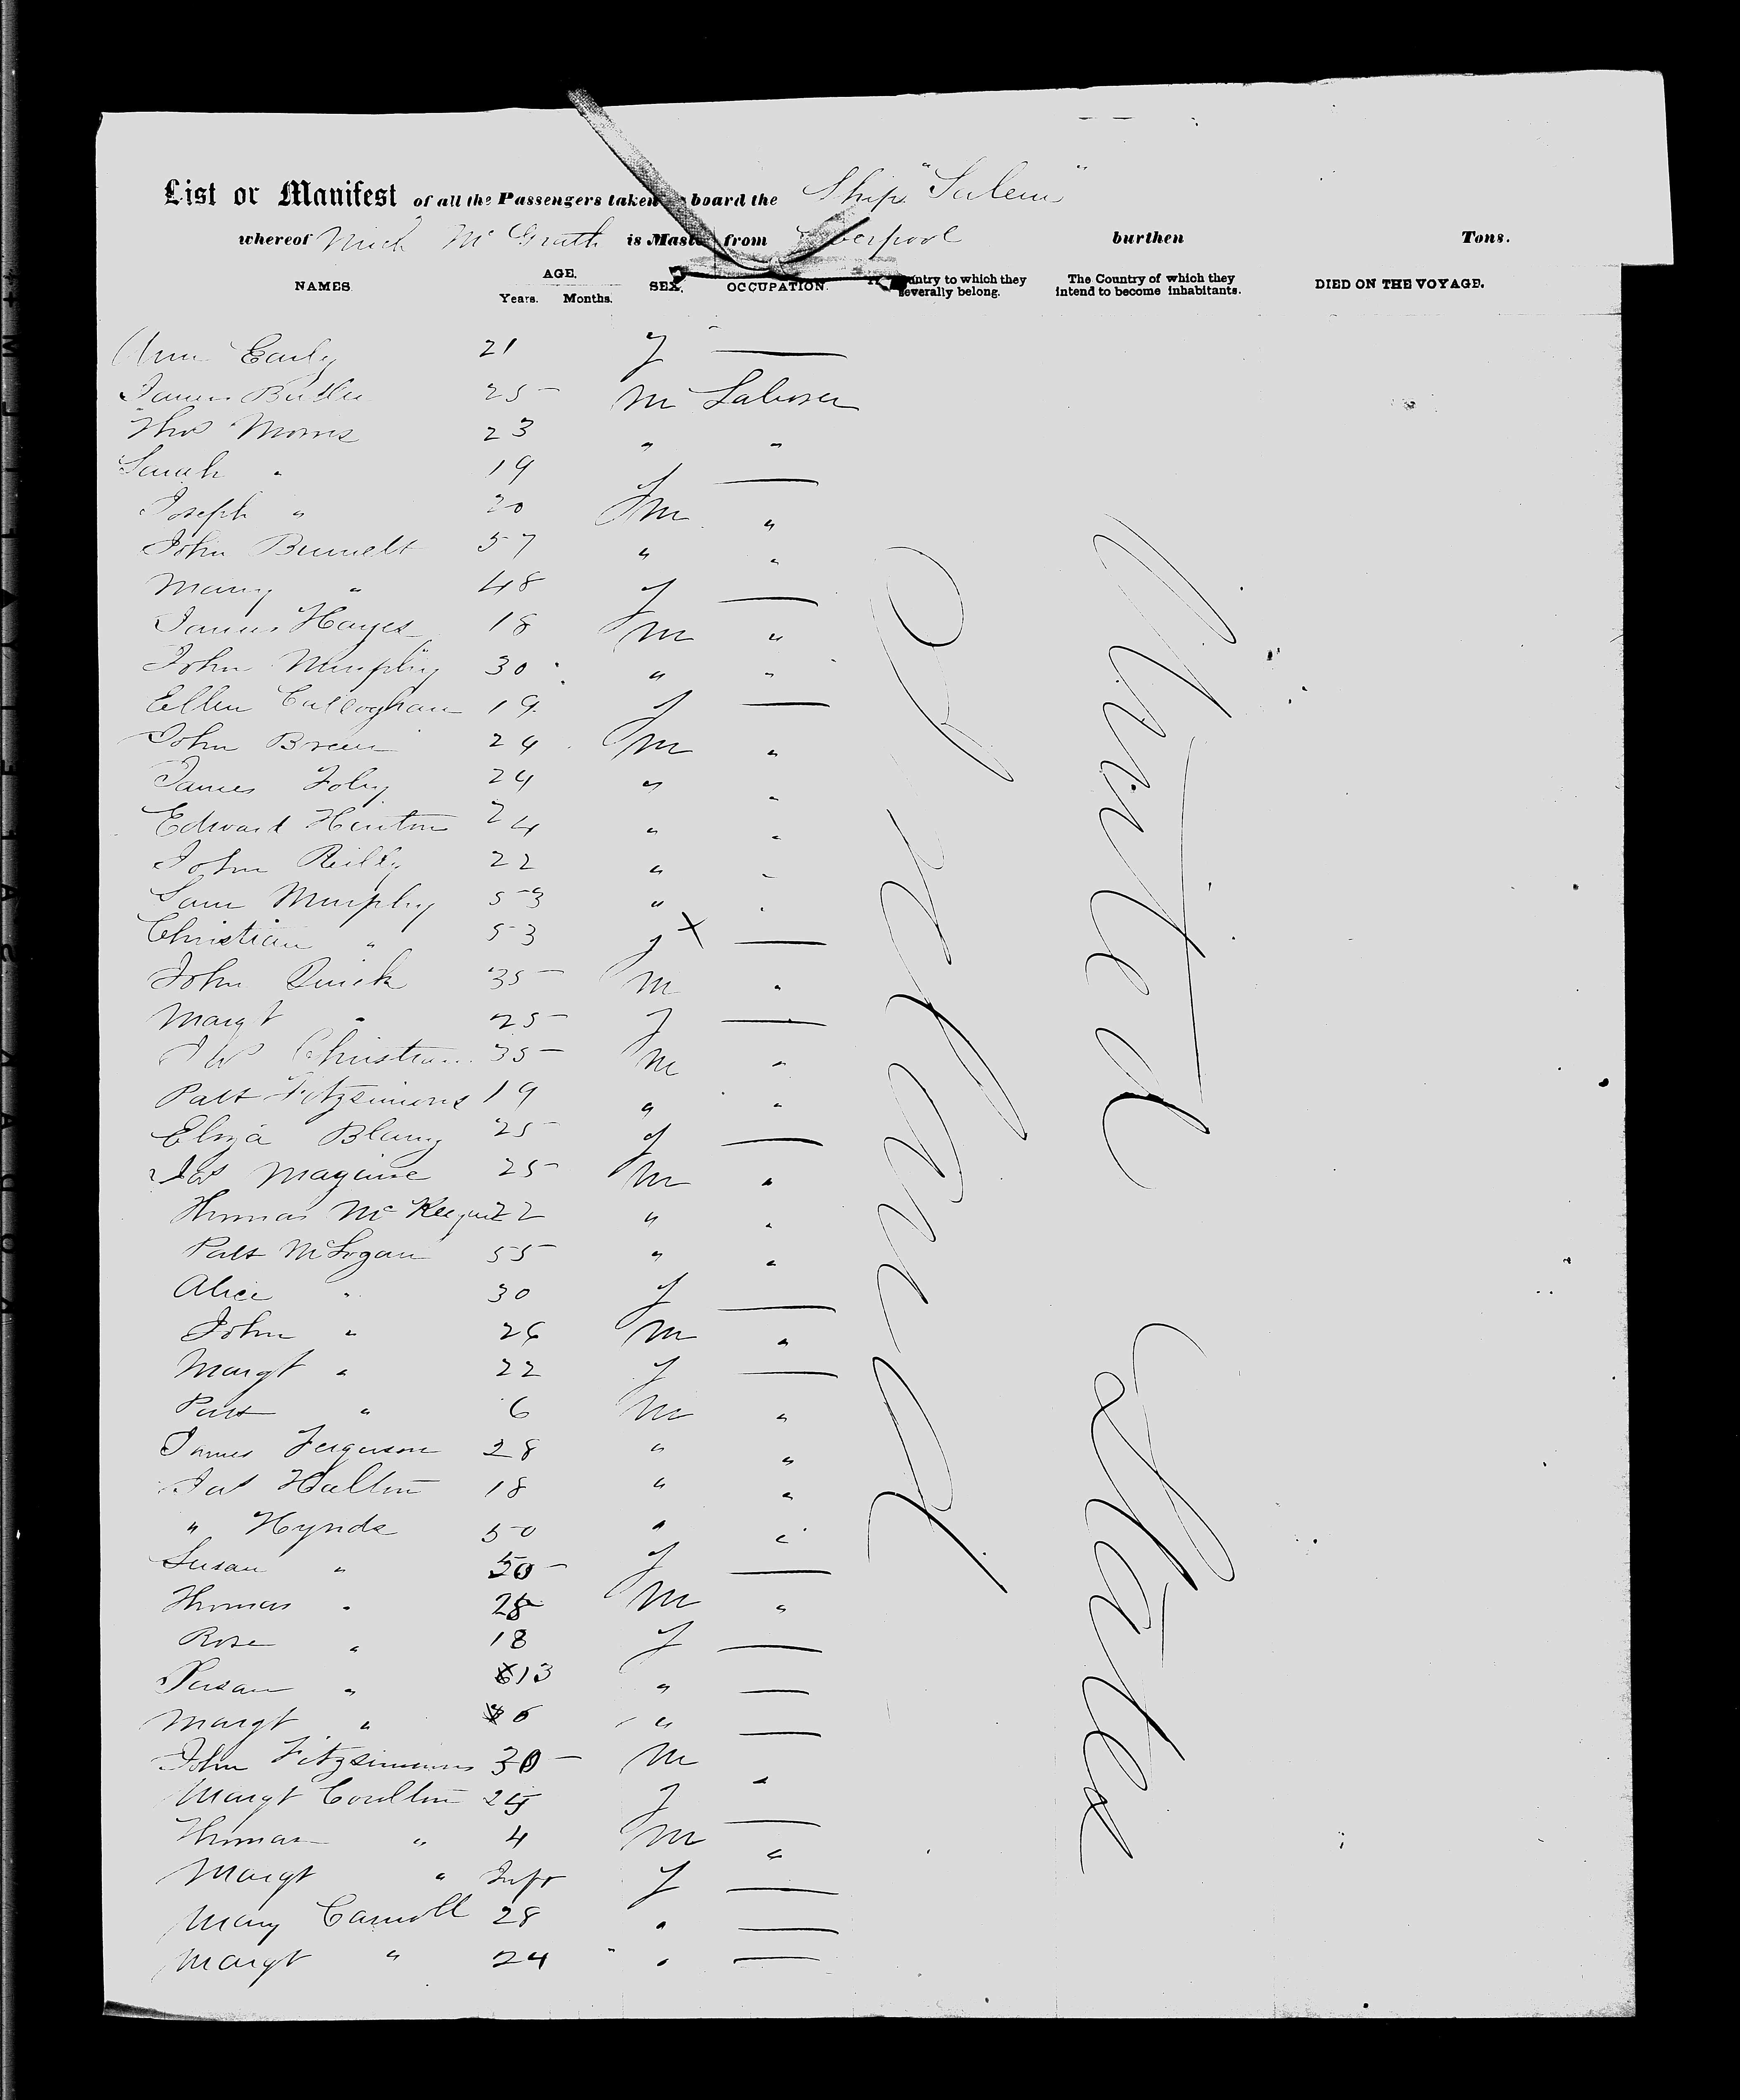 List or Manifest of all the Passengers taken board the Ship "Salem"
whereof Mich McGrath is Master from Liverpool burthen Tons.
NAMES. AGE. Years. Months. SEX. OCCUPATION. Country to which they severally belong. The Country of which they intend to become inhabitants. DIED ON THE VOYAGE.
Ann Early 21 f —
James Butler 25 m Laborer
Thos Morris 23 " "
Sarah " 19 f —
Joseph " 20 m "
John Bennett 57 " "
Mary " 48 f —
James Hayes 18 m "
John Murphy 30 " "
Ellen Callaghan 19 f —
John Breen 24 m "
James Foly 24 " "
Edward Henton 24 " "
John Reilly 22 " "
Sam Murphy 53 " "
Christian " 53 f x —
John Quick 35 m "
Margt " 25 f —
Christian 35 m "
Patt Fitzsimons 19 " "
Eliza Blany 25 f —
Jas Maguire 25 m "
Thomas Mc 22 " "
Patt McLogan 55 " "
Alice " 30 f —
John " 26 m "
Margt " 22 f —
Patt " 6 m "
James Ferguson 28 " "
Jas Halton 18 " "
" Hynds 50 " "
Susan " 50 f —
Thomas " 28 m "
Rose " 18 f —
Susan " 13 " —
Margt " 6 " —
John Fitzsimmons 30 m "
Margt Coulton 25 f —
Thomas " 4 m "
Margt " Inft f —
Mary Carroll 28 " —
Margt " 24 " —
Ireland
United States